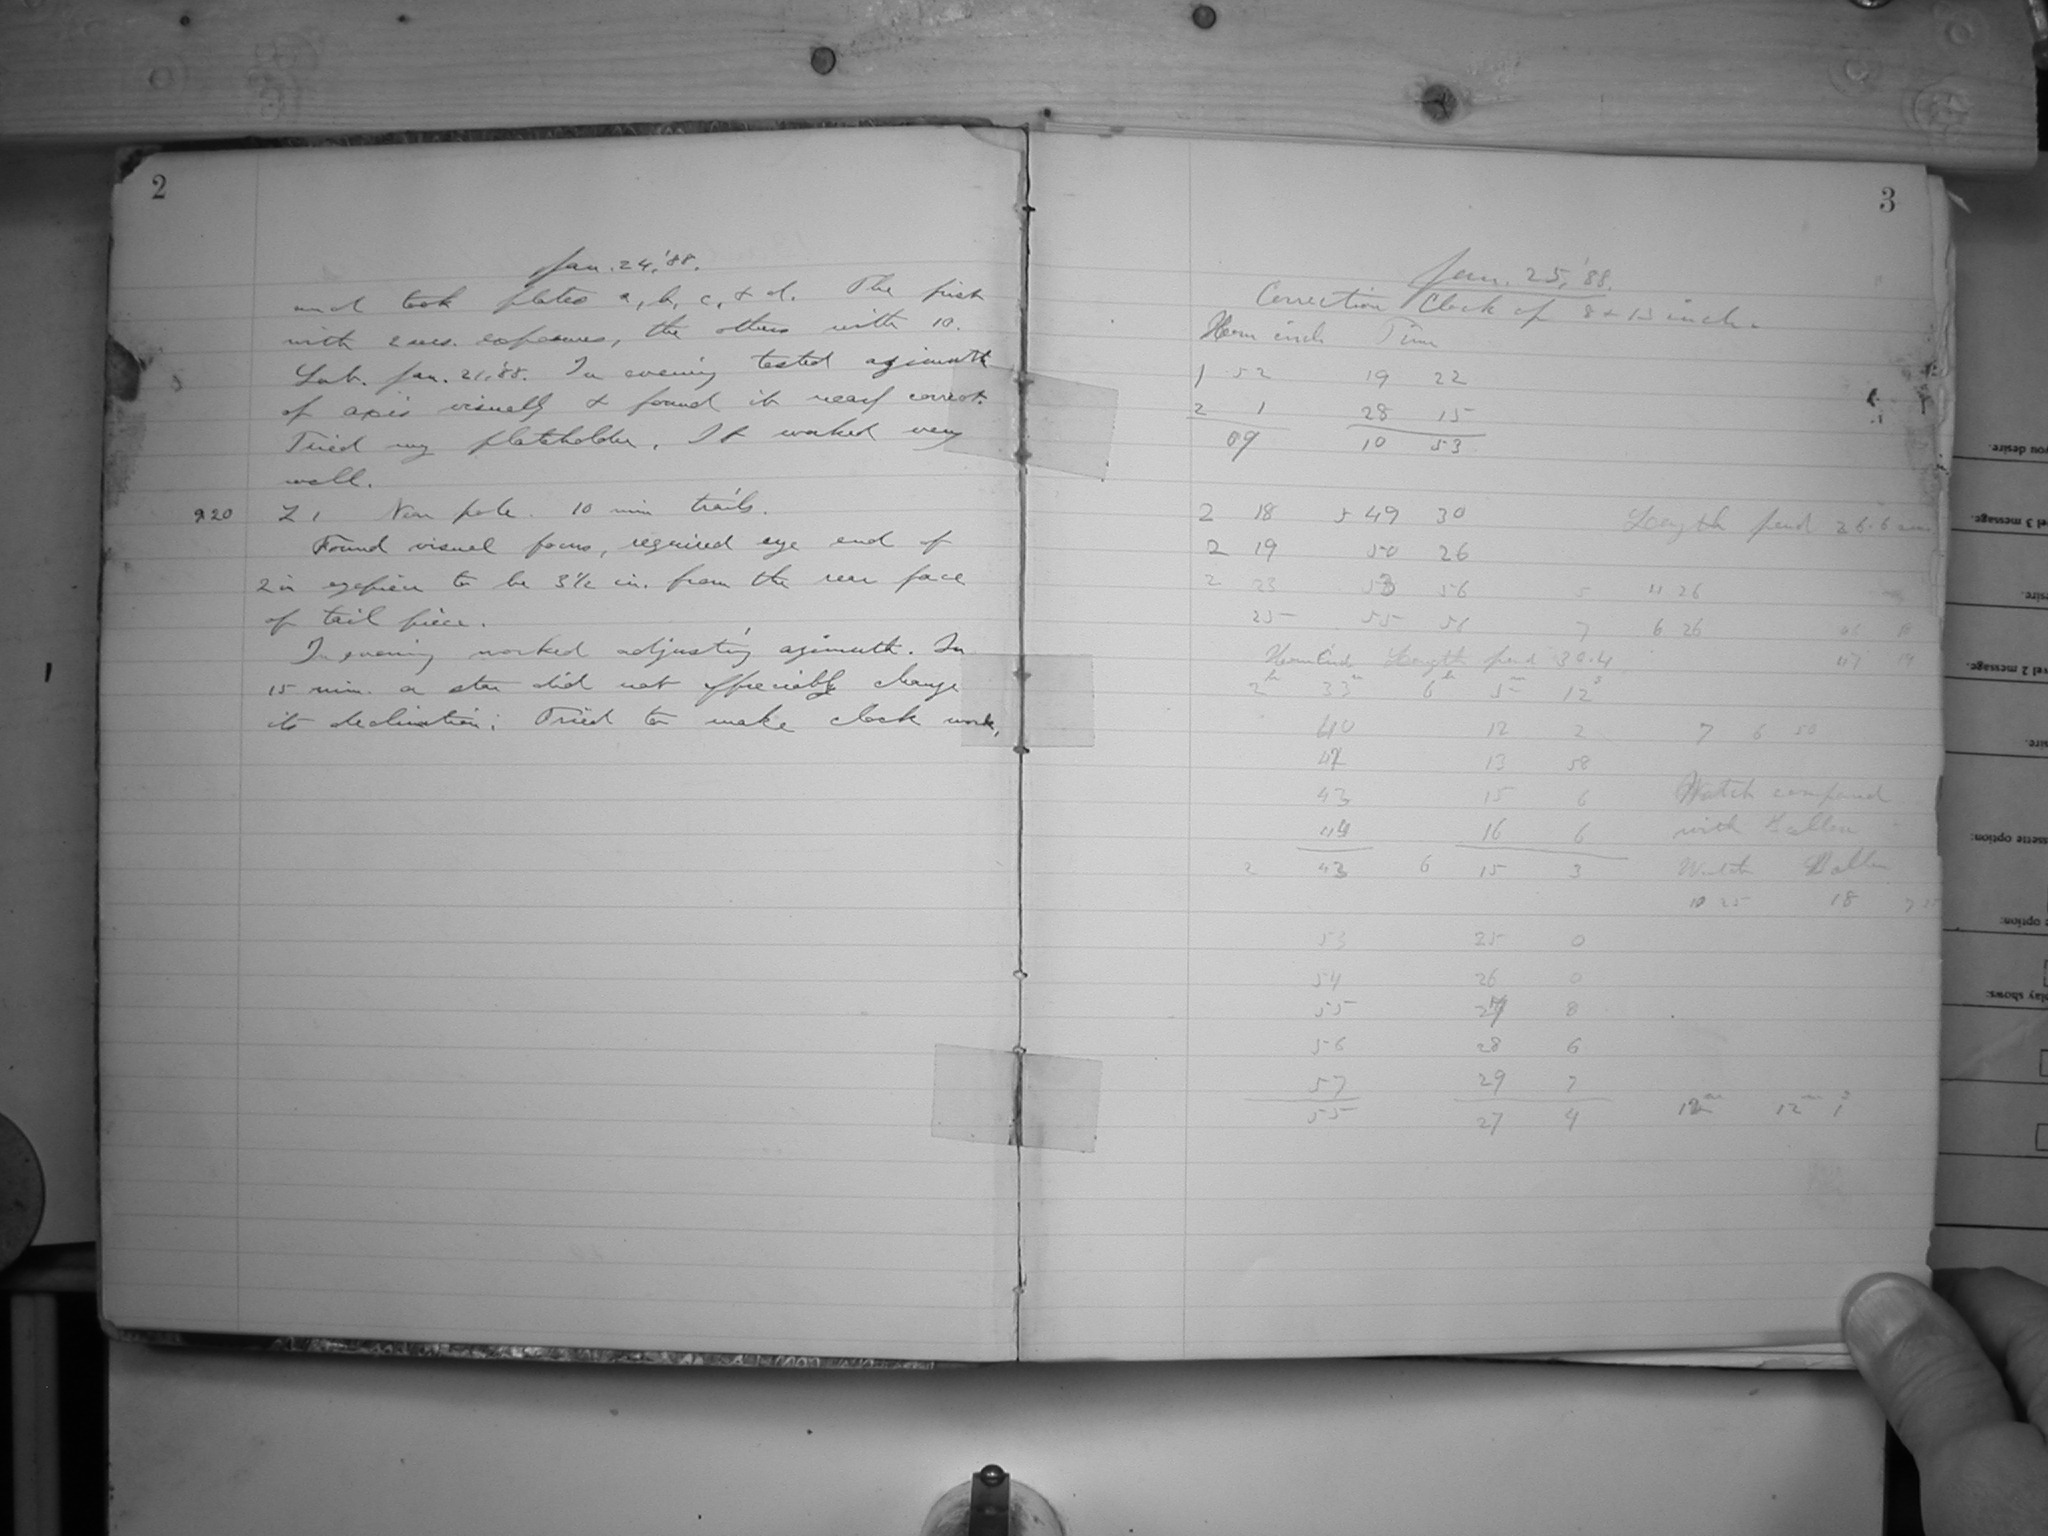 2
Jan. 24, '88.
and took plates a, b, c, & d. The first
with 2 sec. exposures, the others with 10.
Sat. Jan. 21, '88. In evening tested azimuth
of axis visually & found it nearly correct.
Tried my plateholder. It worked very
well.
920 Z 1 Near pole. 10 min trails.
Found visual focus, required eye end of
2 in eyepiece to be 3½ in. from the rear face
of tail piece.
In evening worked adjusting azimuth. In
15 min. a star did not appreciably change
its declination. Tried to make clock work,
3
Jan. 25, '88.
Correction Clock of 8 & 15 inch.
Hour circle Time
1 52 19 22
2 1 28 15
09 10 53
2 18 5 49 30 Length pend 26.6
2 19 50 26
2 23 53 56 5 4 26
25 55 56 7 6 26
Hour Circle Length pend 30.4
2h 33m 6h 5m 12s
40 12 2 7 6 50
42 13 58
43 15 6 Watch compared
44 16 6 with
2 43 6 15 3 Watch
10 25 18
53 25 0
54 26 0
55 27 8
56 28 6
57 29 7
55 27 4 12m 12m 1s